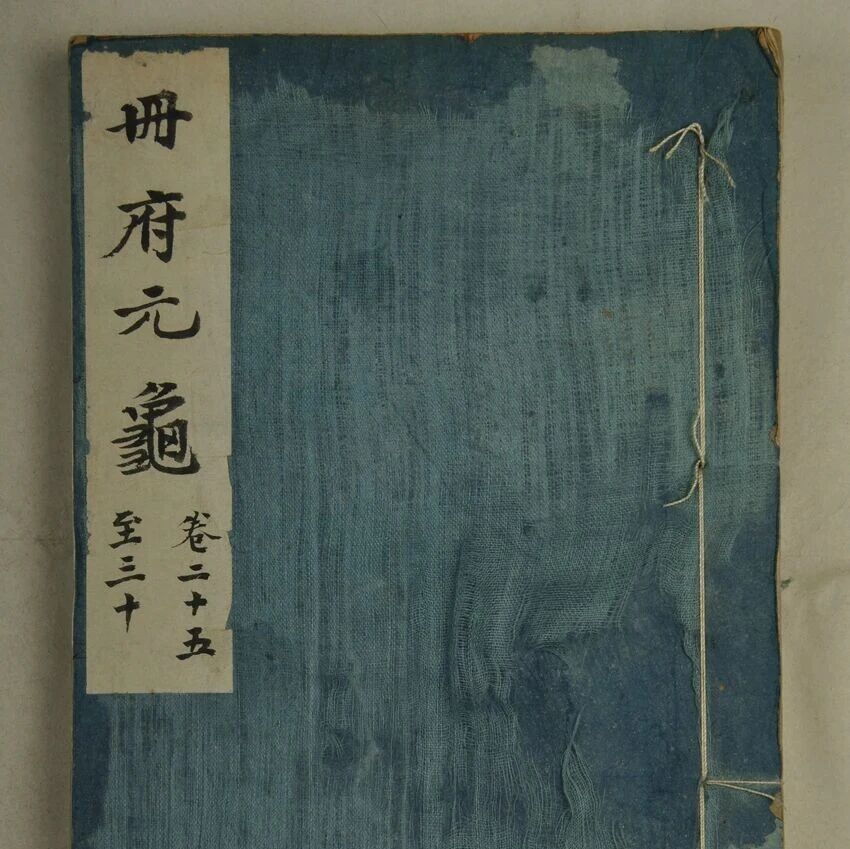 冊府元龜
卷二十五
至三十